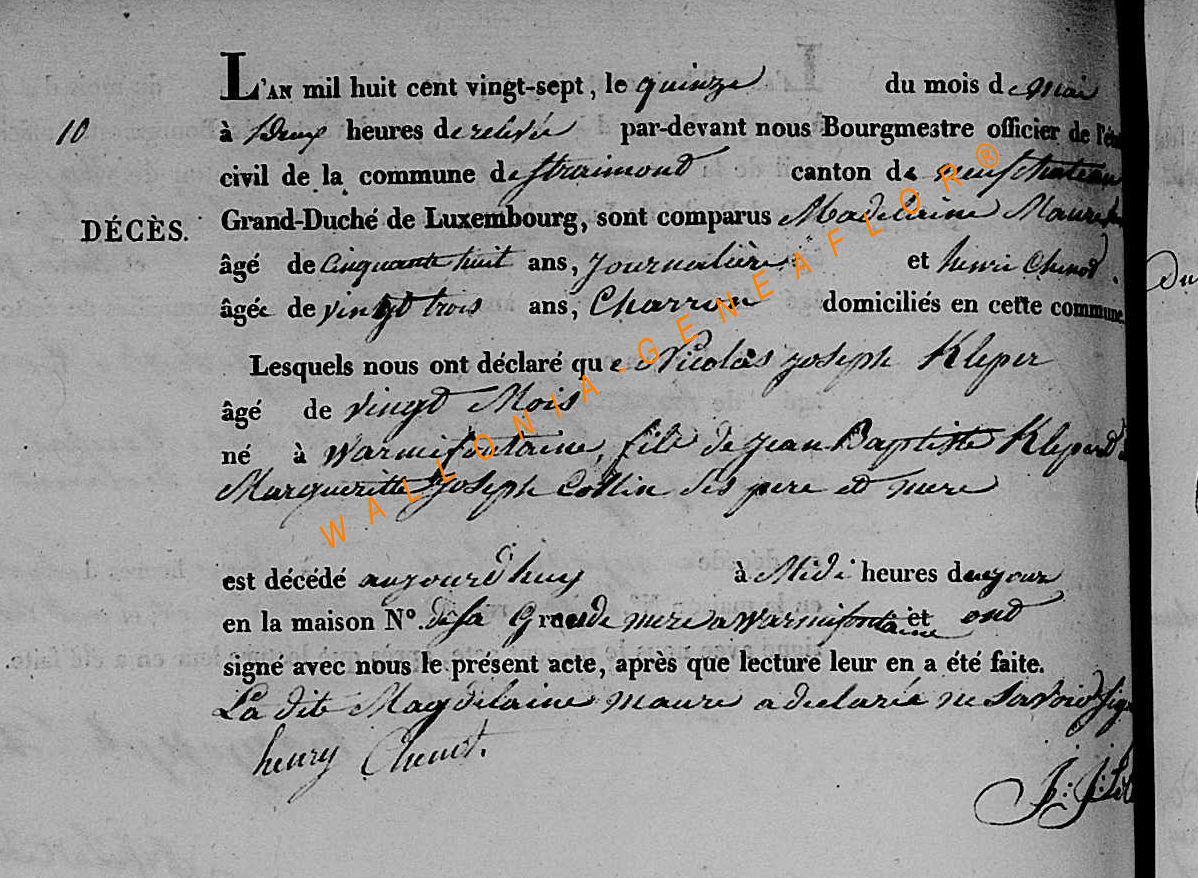 L'AN mil huit cent vingt-sept, le quinze du mois de mai
10
à deux heures de relevée par-devant nous Bourgmestre officier de l'é
civil de la commune de Straimond canton de neufchateau
DÉCÈS.
Grand-Duché de Luxembourg, sont comparus Madelaine Maure
âgé de Cinquante huit ans, journalière et henri Chenot
âgée de vingt trois ans, Charron domiciliés en cette commune
du
Lesquels nous ont déclaré que Nicolas joseph Kleper
âgé de vingt Mois
né à Warmifontaine, fils de jean Baptiste Kleper
Margueritte joseph Collin ses pere et mere
est décédé aujourd'huy à Midi heures du jour
en la maison N°. de sa Grande mere a warmifontaine et ont
signé avec nous le présent acte, après que lecture leur en a été faite.
La dite Magdelaine maure a declarée ne savoid sig
henry Chenot.
J: J:
WALLONIA-GENEAFLOR®